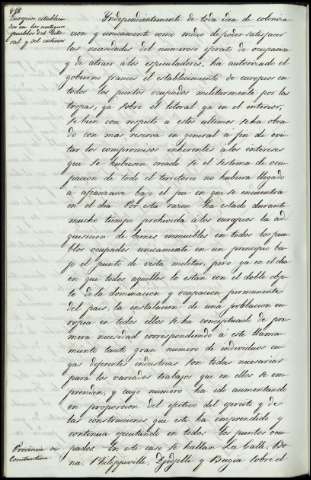 438
Europeos establecidos
en los antiguos
pueblos del litoral
y del interior
Independientemente de toda idea de coloniza-
cion y unicamente como medio de poder satisfacer
las necesidades del numeroso ejercito de ocupacion
y de atraer á los especuladores, ha autorizado el
gobierno frances el establecimiento de europeos en
todos los puntos ocupados militarmente por las
tropas, ya sobre el litoral ya en el interior,
si bien con respecto á estos ultimos se ha obra-
do con mas reserva en general a fin de evi-
tar los compromisos inherentes á los intereses
que se hubieran creado si el sistema de ocu-
pacion de todo el territorio no hubiera llegado
a afianzarse bajo el pie en que se encuentra
en el dia. Por esta razon ha estado durante
mucho tiempo prohibida á los europeos la ad-
quisicion de bienes inmuebles en todos los pun-
tos ocupados unicamente en un principio ba-
jo el punto de vista militar, pero ya en el dia
en que todos aquellos lo estan con el doble obje-
to de la dominacion y ocupacion permanentes
del pais, la instalacion de una poblacion eu-
ropea en todos ellos se ha conceptuado de pri-
mera necesidad correspondiendo á este llama-
miento tanto gran numero de individuos cu-
yas diferentes industrias son todas necesarias
para los variados trabajos que en ellos se em-
prenden, y cuyo numero ha ido aumentando
en proporcion del efectivo del ejercito y de
las construcciones que este ha emprendido y
continua ejecutando en todos los puntos ocu-
pados. En este caso se hallan La Calle, Bo-
na, Philippeville, Djidjelli y Bugia sobre el
Provincia de
Constantina